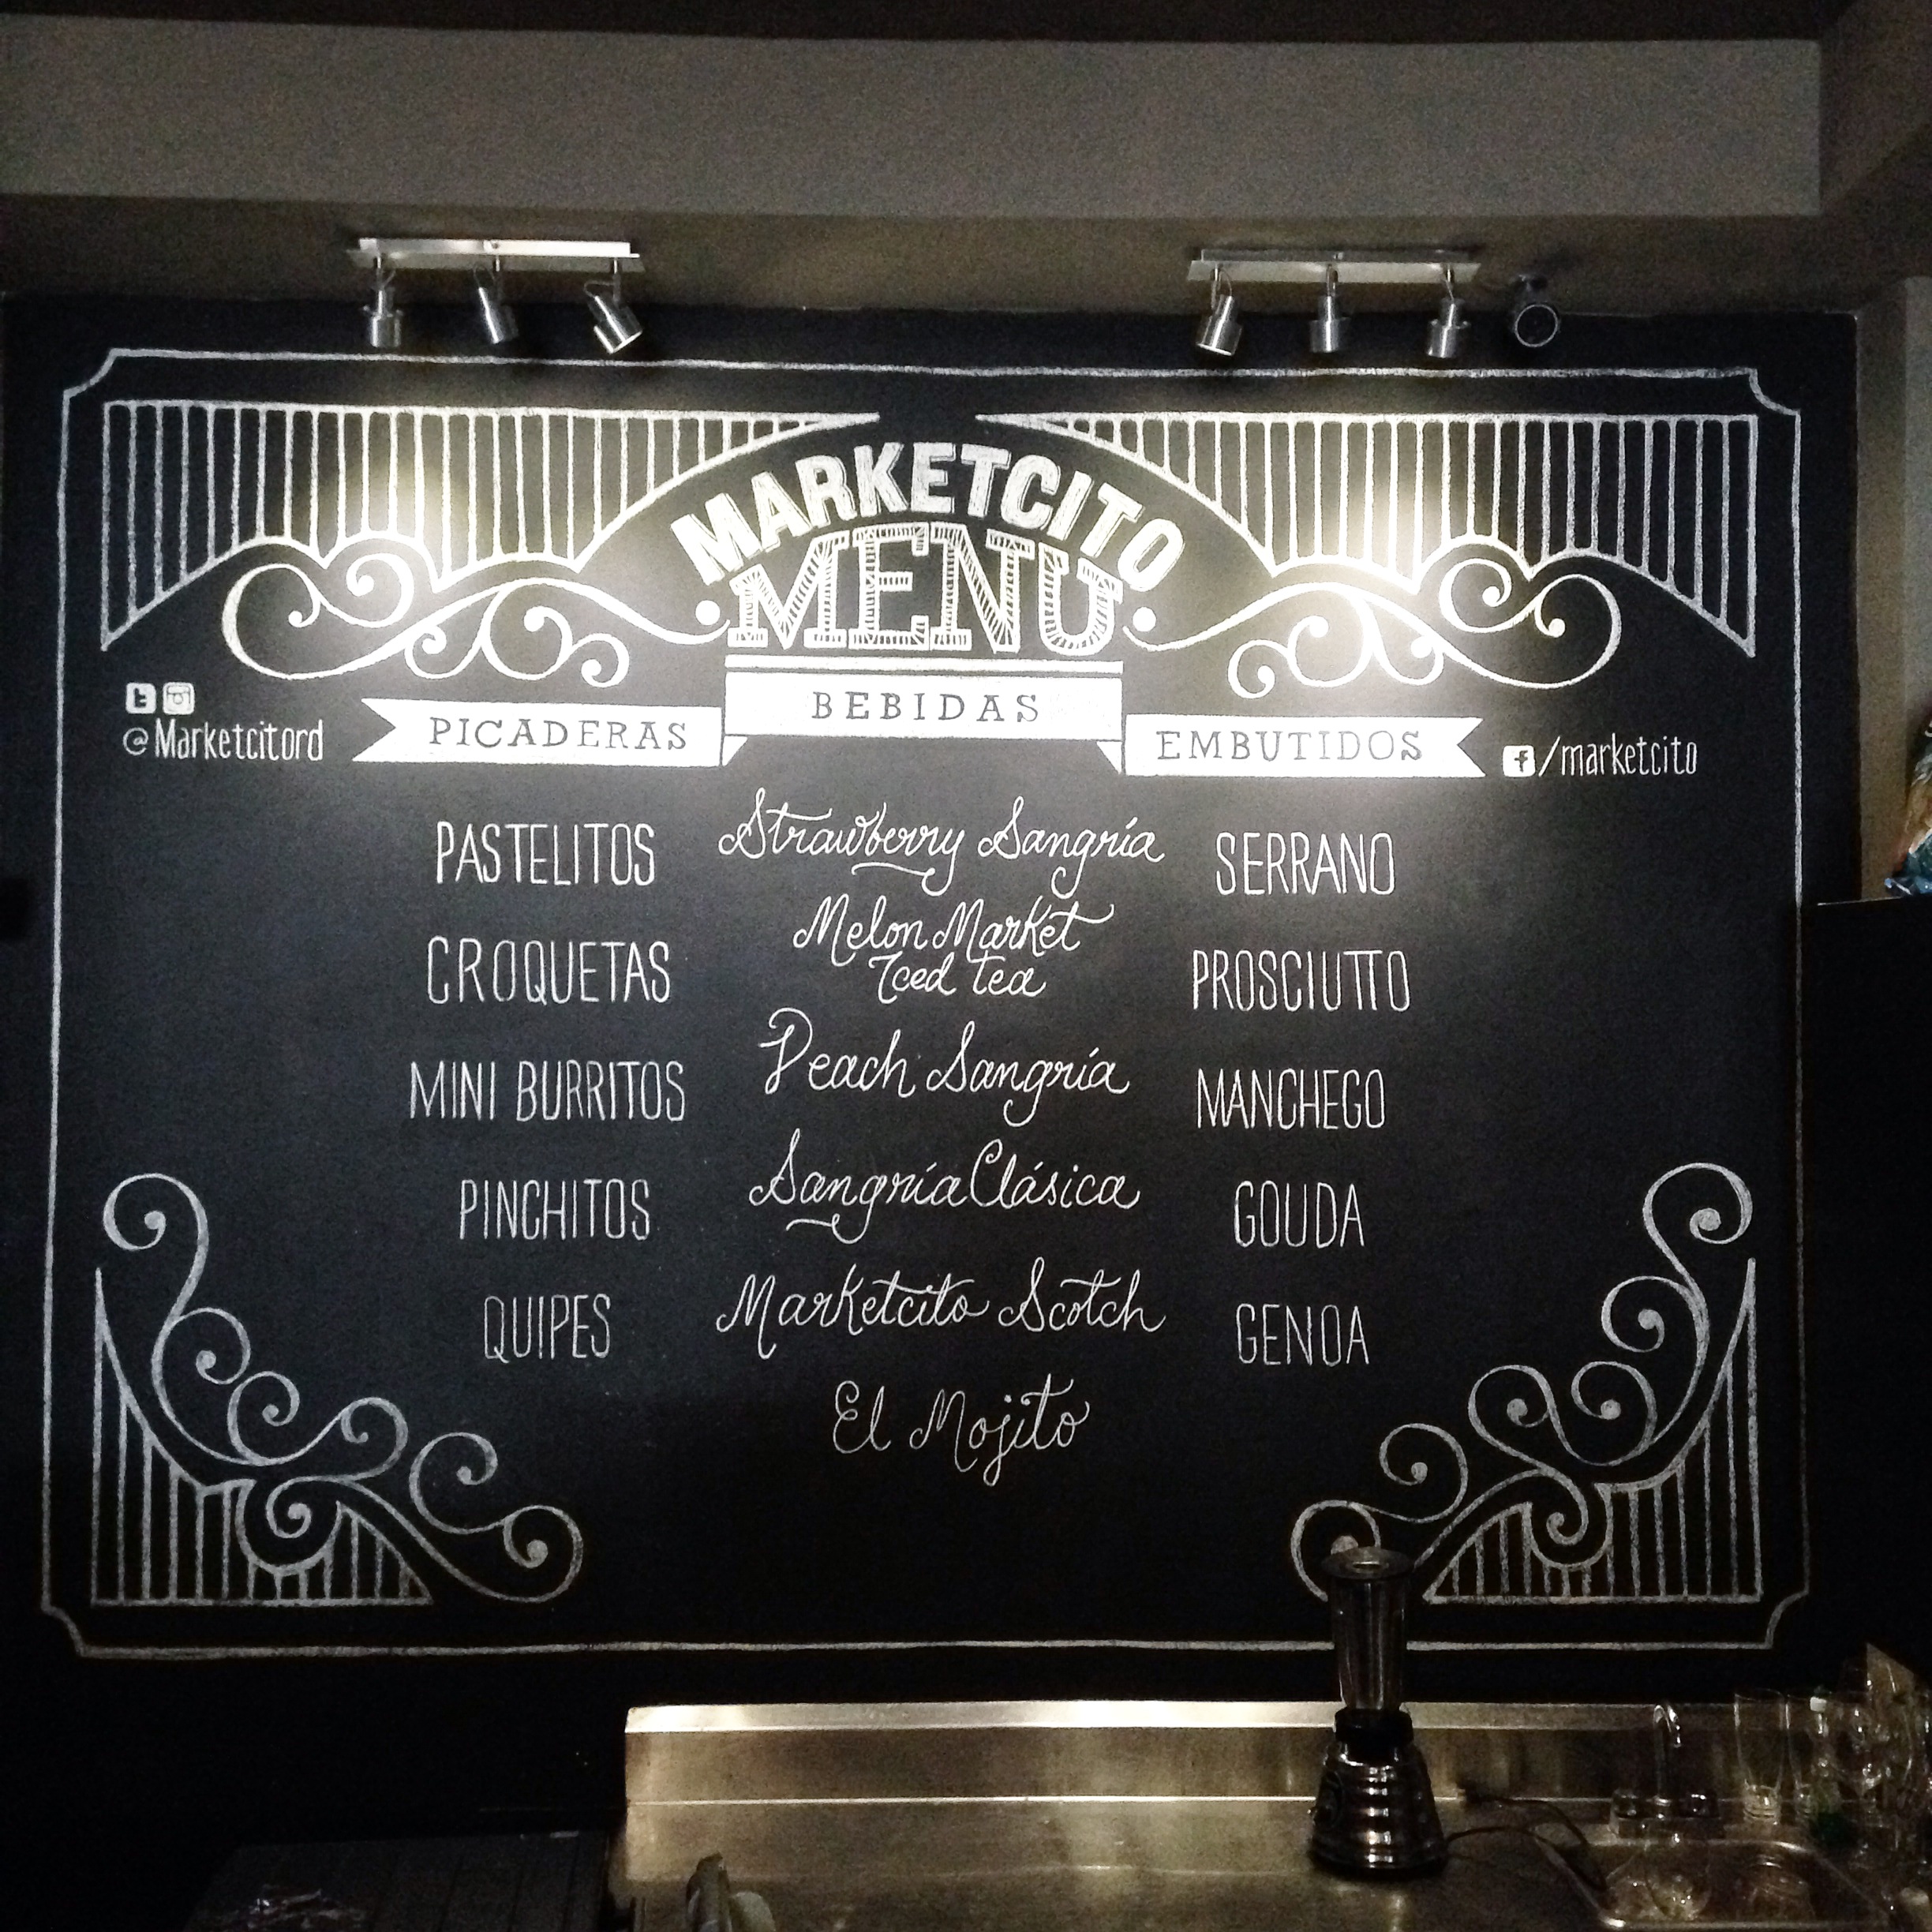 MARKETCITO
MENU
@Marketcitord
PICADERAS
BEBIDAS
EMBUTIDOS
/marketcito
PASTELITOS
CROQUETAS
MINI BURRITOS
PINCHITOS
QUIPES
Strawberry Sangría
Melon Market
Iced tea
Peach Sangría
Sangría Clásica
Marketcito Scotch
El Mojito
SERRANO
PROSCIUTTO
MANCHEGO
GOUDA
GENOA